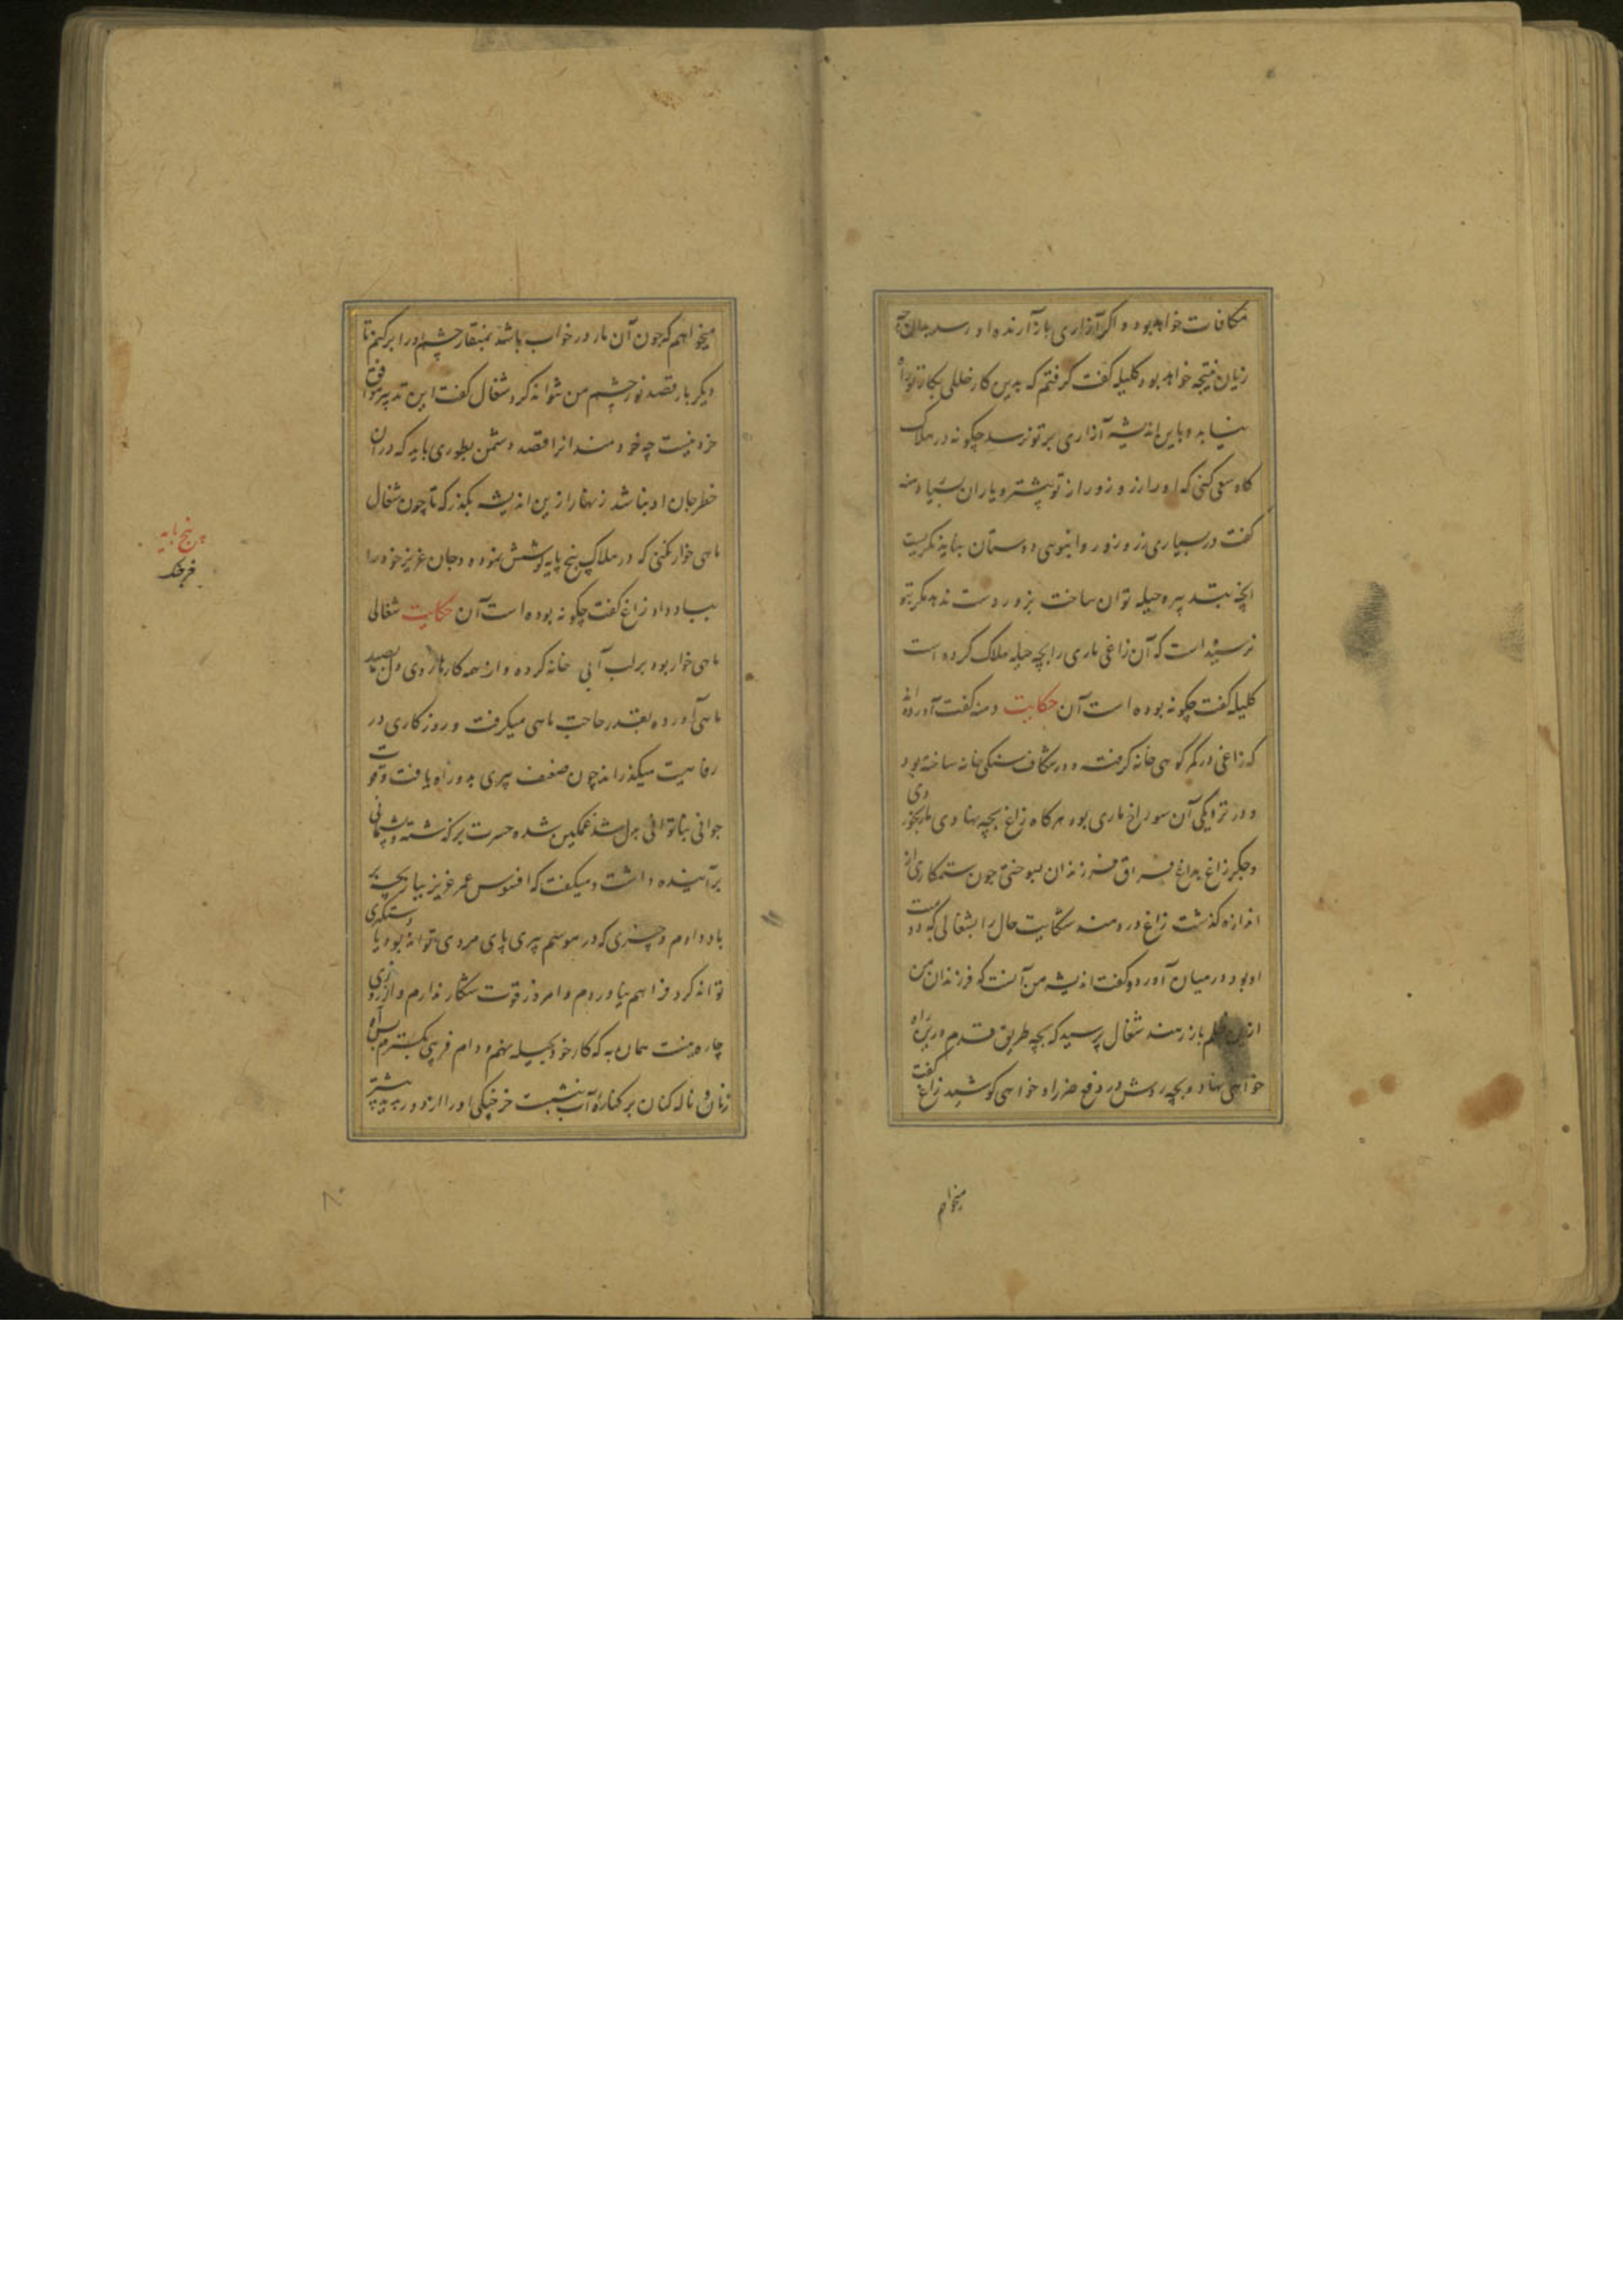 مکافات خواهد بود و اگر آزاری بازآرنده او رسد بدان
زیان نتیجه خواهد بود کلیله گفت گرفتم که بدین کار خللی بکار تو راه
نیابد و باین اندیشه آزاری بر تو نرسد چگونه در هلاک
گاو سعی کنی که او را زر و زور از تو بیشتر و یاران بسیار دمنه
گفت در بسیاری زر و زور و انبوهی دوستان نباید نگریست
انچه بتدبیر و حیله توان ساخت بزور دست ندهد مگر بتو
نرسیده است که آن زاغی ماری را بچه حیله هلاک کرده است
کلیله گفت چگونه بوده است آن حکایت دمنه گفت آورده اند
که زاغی در کمر کوهی خانه گرفت و در شکاف سنگی خانه ساخته بود
و در نزدیکی آن سوراخ ماری بود هرگاه زاغ بچه نهادی مار بخوردی
و جگر زاغ بداغ فراق فرزندان بسوختی چون ستمکاری از
اندازه گذشت زاغ دردمند شکایت حال را بشغالی که دوست
او بود در میان آورد و گفت اندیشه من آنست که فرزندان من
از ین ظلم باز رهند شغال پرسید که بچه طریق قدم درین راه
خواهی نهاد و بچه روش در دفع ضرر او خواهی کوشید زاغ گفت
میخواهم
میخواهم که چون آن مار در خواب باشد بمنقار چشم او را برکنم تا
دیگر بار قصد نور چشم من نتواند کرد شغال گفت این تدبیر موافق
خرد نیست چه خردمندانرا قصد دشمن بطوری باید که در آن
خطر جان او نباشد زنهار ازین اندیشه بگذر که تا چون شغال
ماهی خوار نکنی که در هلاک پنج پایه کوشش نموده و جان عزیز خود را
بباد داد زاغ گفت چگونه بوده است آن حکایت شغالی
ماهی خوار بود بر لب آبی خانه کرده و از همه کارها روی دل بصید
ماهی آورده بقدر حاجت ماهی میگرفت و روزگاری در
رفاهیت میگذراند چون ضعف پیری بدو راه یافت و قوت
جوانی بناتوانی بدل شد غمگین شده حسرت برگذشته و پشیمانی
بر آینده داشت و میگفت که افسوس عمر عزیز ببازیچه بر
باد دادم و چیزی که در موسم پیری پای مردی تواند بود یا دستگیری
تواند کرد فراهم نیاوردم و امروز قوت شکار ندارم و از روزی
چاره نیست همان به که کار خود بحیله نهم و دام فریبی بگسترم پس آه
زنان و ناله کنان بر کناره آب بنشست خرچنگی او را از دور دید پیشتر
پنج پایه
خرچنگ
۸۰